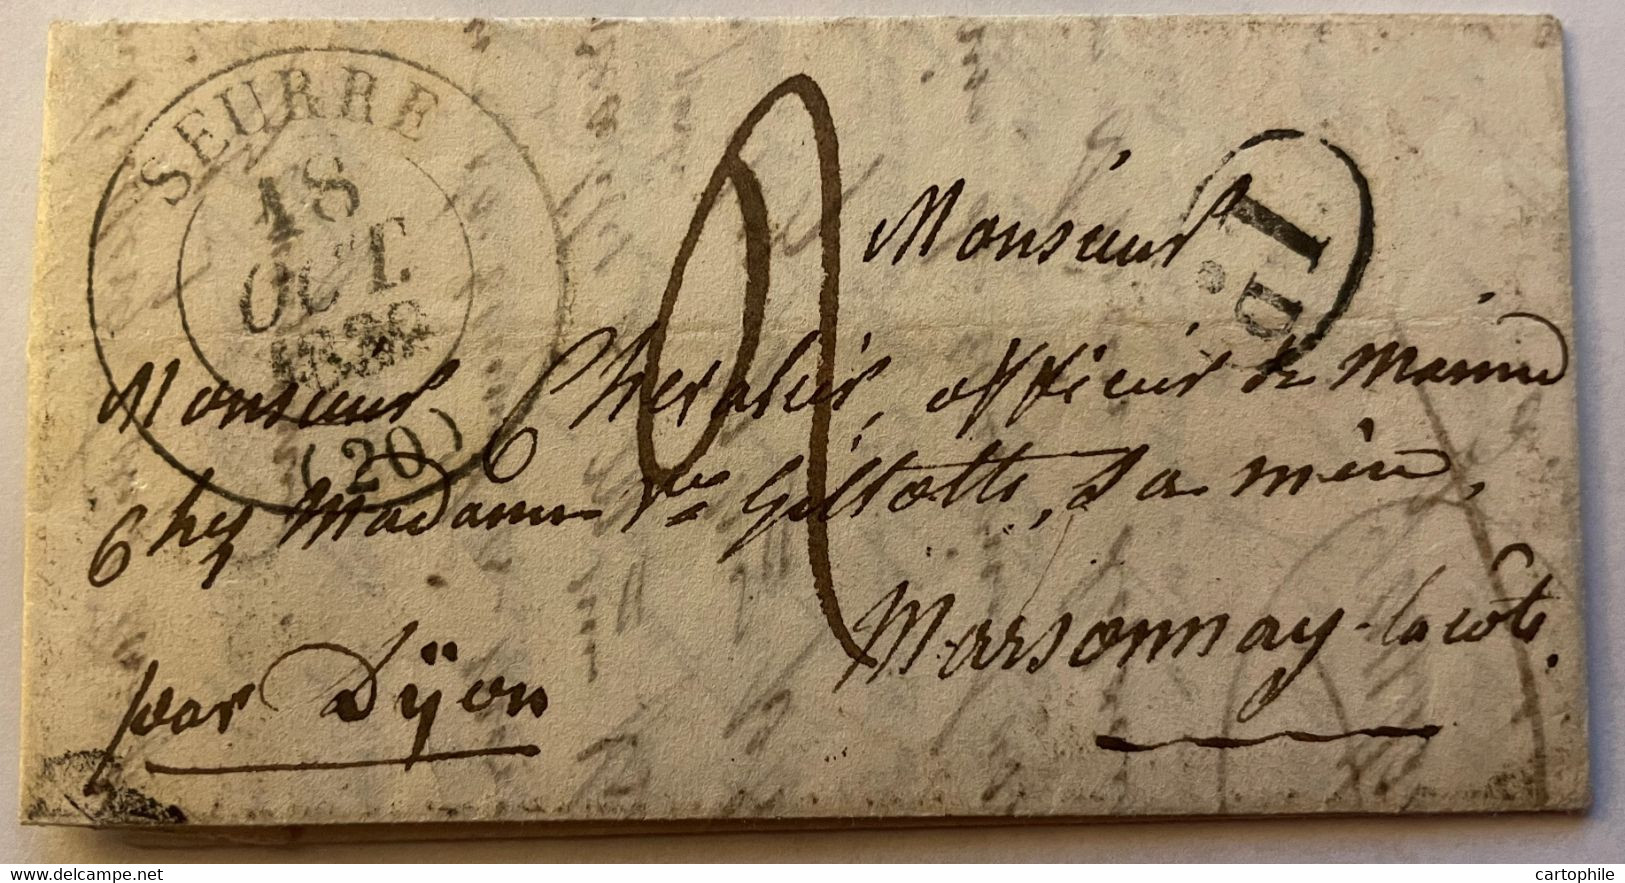 SEURRE
18
OCT.
1838
(20)
2
I.D
Monsieur
Monsieur Chevalier, officier de marine
Chez Madame Vve Giltotte, Sa mère,
Marsonnay-lacote.
par Dijon
delcampe.net
cartophile